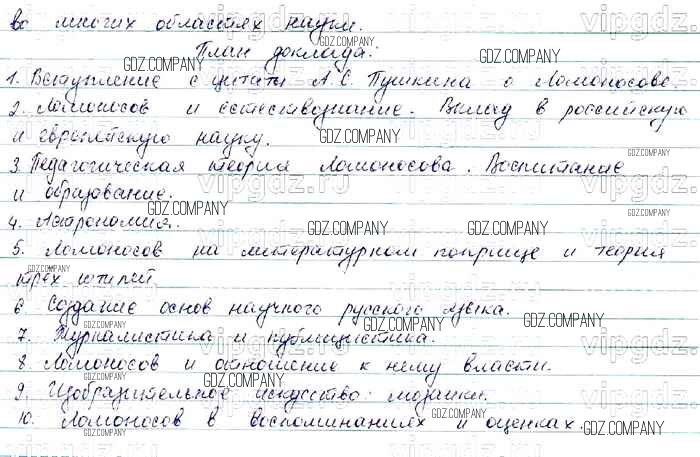 во многих областях науки.
План доклада:
1. Вступление с цитаты А.С. Пушкина о Ломоносове.
2. Ломоносов и естествознание. Вклад в российскую
и европейскую науку.
3. Педагогическая теория Ломоносова. Воспитание
и образование.
4. Астрономия.
5. Ломоносов на литературном поприще и теория
трех штилей
6 Создание основ научного русского языка.
7. Журналистика и публицистика.
8. Ломоносов и отношение к нему власти.
9. Изобразительное искусство: мозаики.
10. Ломоносов в воспоминаниях и оценках.